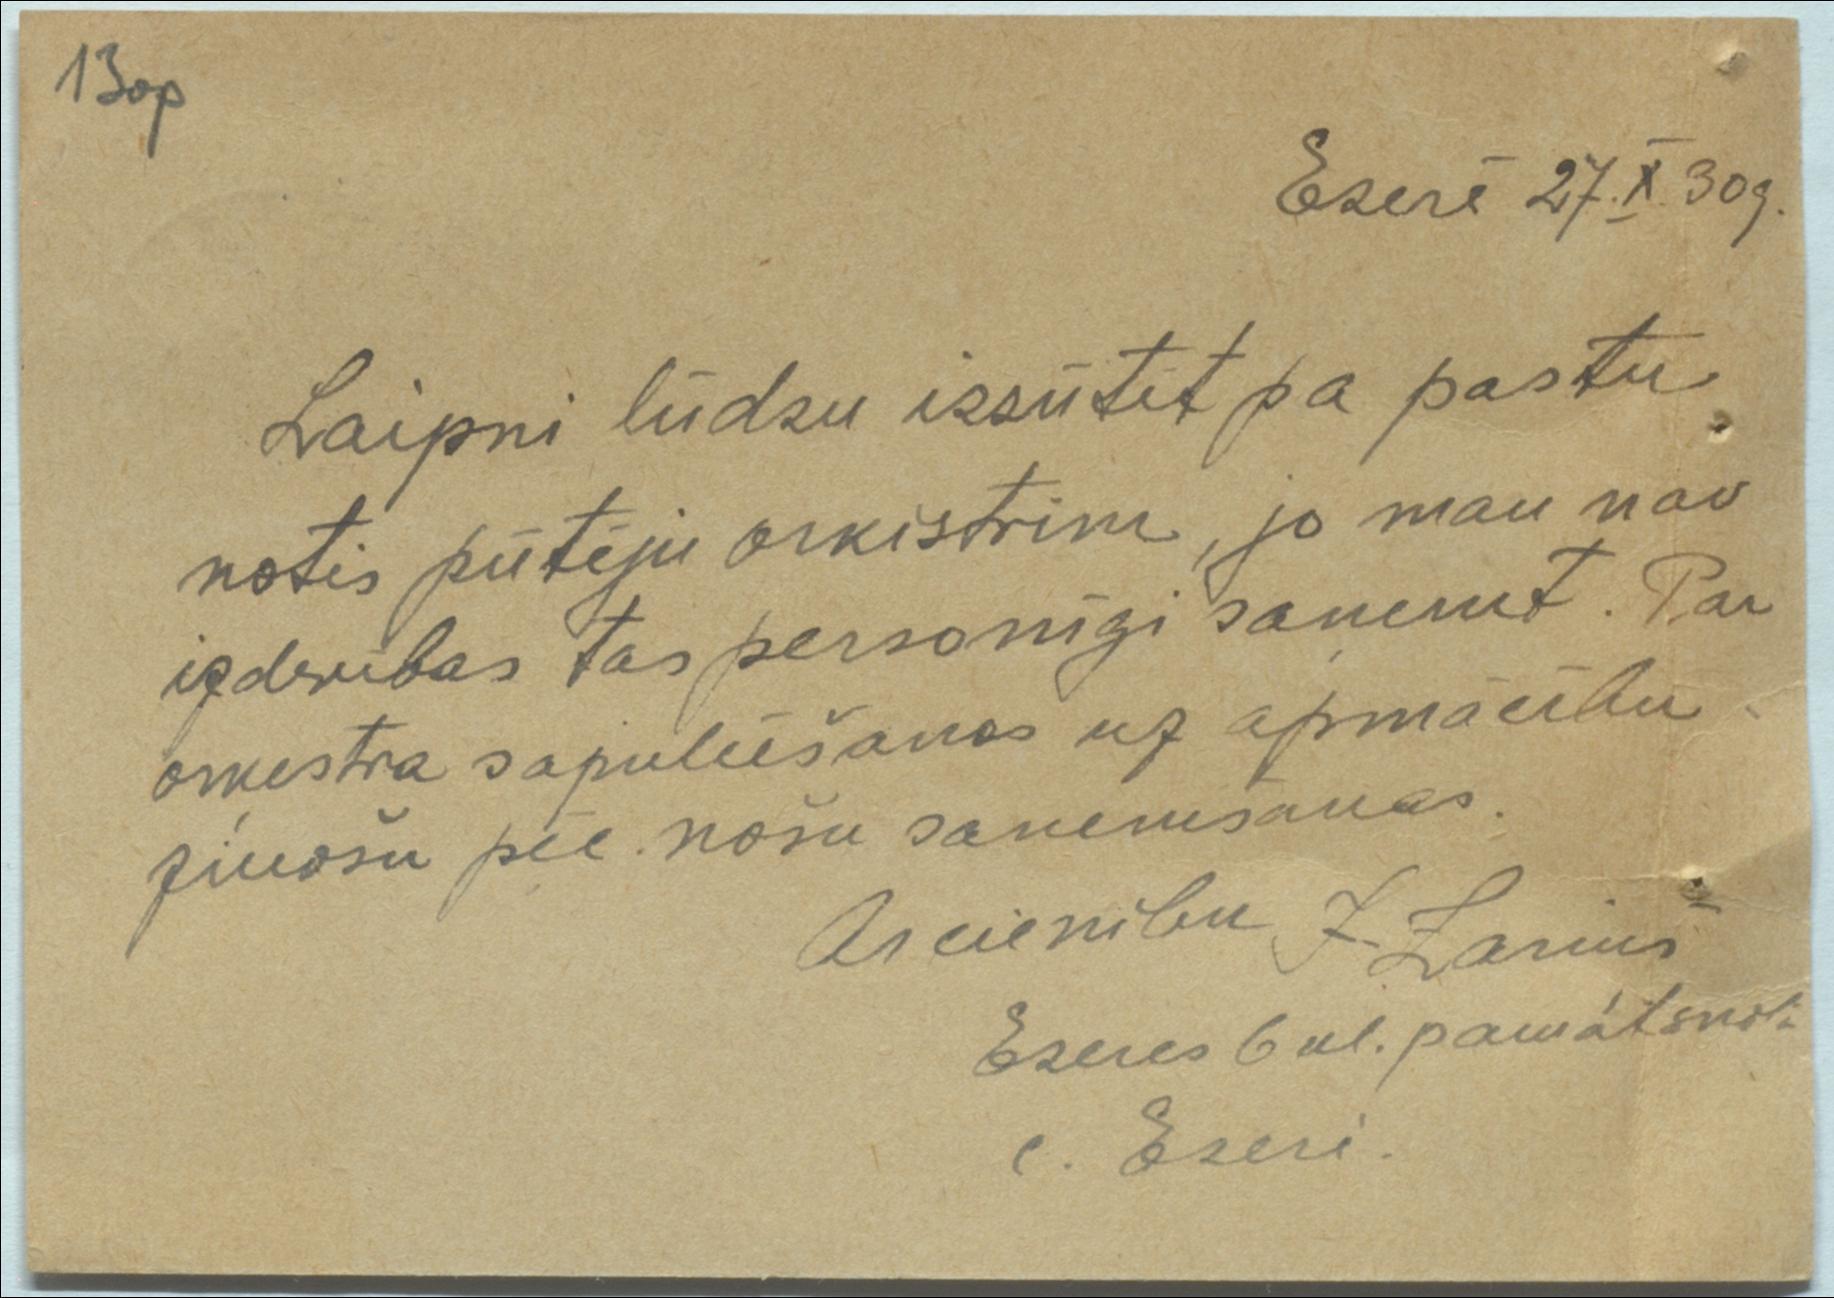 13op
Ezerē 27.X.30g.
Laipni lūdzu izsūtīt pa pastu
notis pūtēju orķistrim, jo man nav
izdevības tas personīgi saņemt. Par
orķestra sapulcēšanos uz apmācību
ziņošu pēc nošu saņemšanas.
Ar cienību J. Zariņš
Ezeres 6 kl. pamātskolā
c. Ezeri.